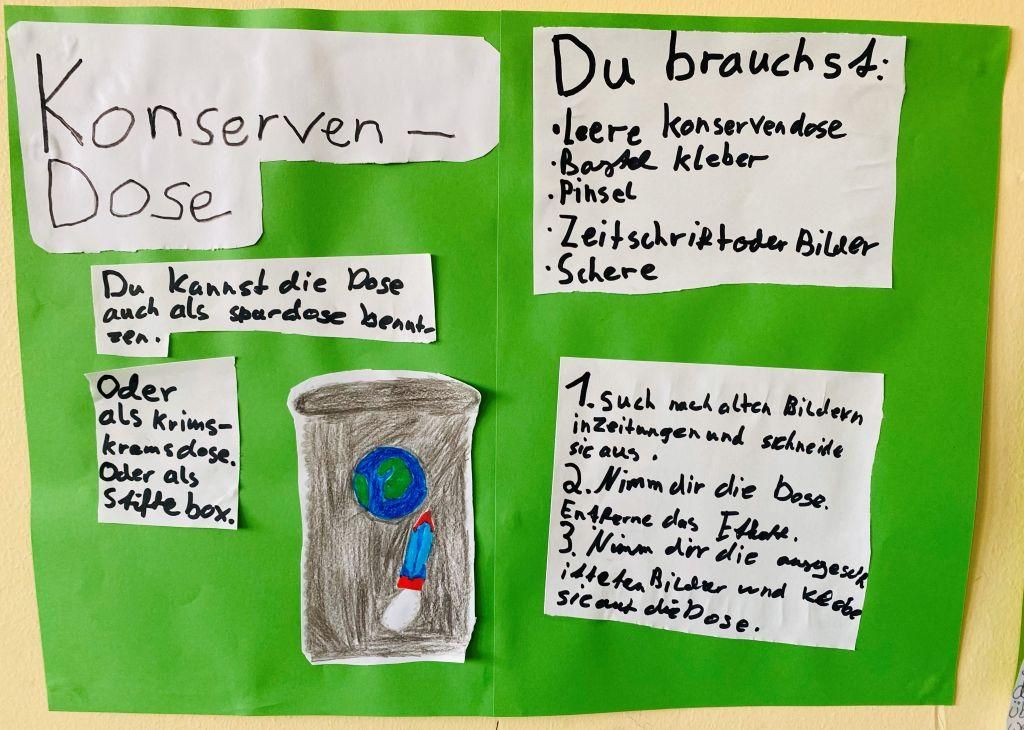 Konserven-
Dose
Du kannst die Dose
auch als spardose benut-
zen.
Oder
als Krims-
kramsdose.
Oder als
Stifte box.
Du brauchst:
· Leere Konservendose
· Bastel kleber
· Pinsel
· Zeitschrift oder Bilder
· Schere
1. Such nach alten Bildern
in Zeitungen und schneide
sie aus.
2. Nimm dir die Dose.
Entferne das Etikett.
3. Nimm dir die ausgesch
itteten Bilder und klebe
sie auf die Dose.